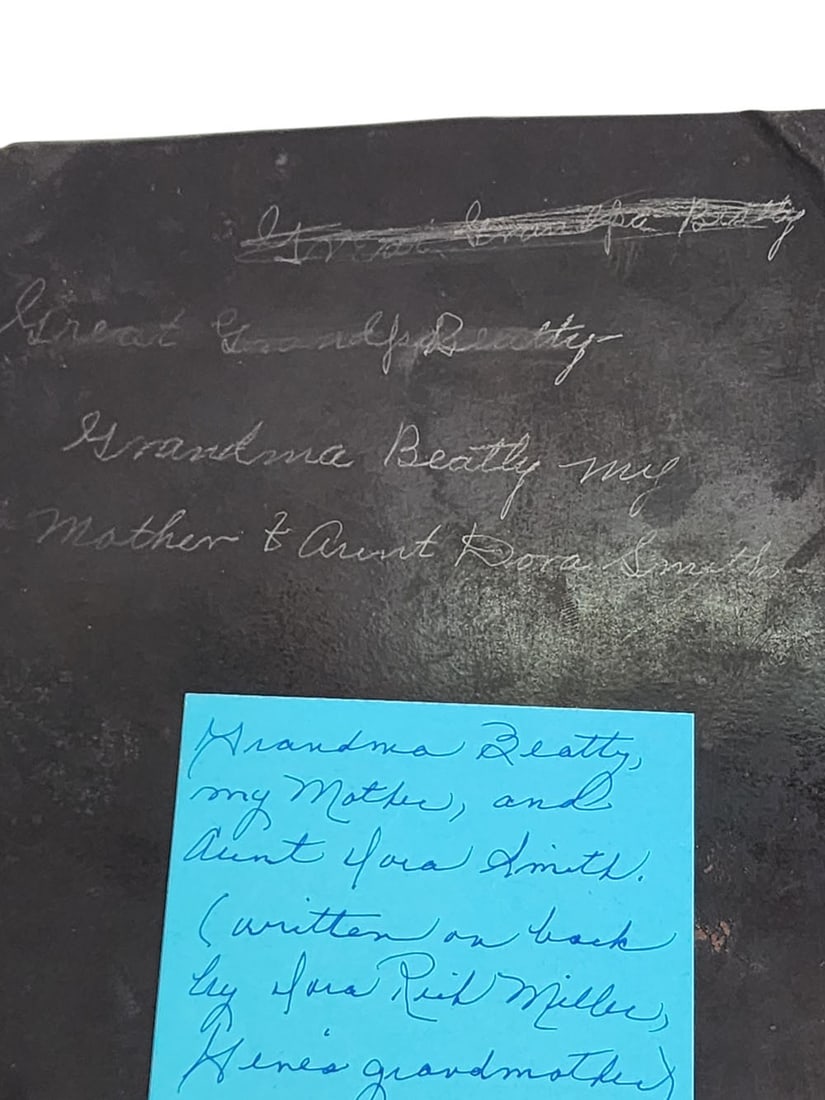 Great Grandpa Beatty
Great Grandpa Beatty
Grandma Beatty my
Mother & Aunt Dora Smith
Grandma Beatty,
my Mother, and
Aunt Dora Smith.
(written on back
by Dora Rich Miller,
Gene's grandmother)